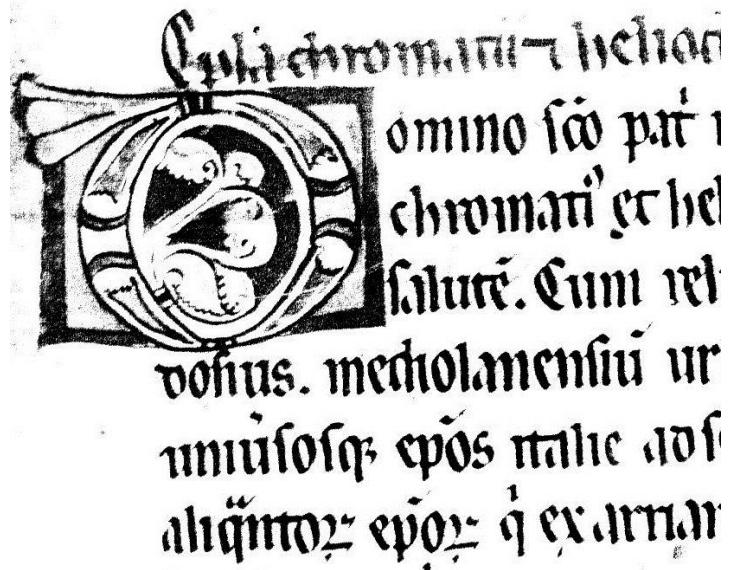 Epl̄a chromatii ⁊ helioď
Domino sc̄o pat̾
chromati᾽ et hel
salutē. Cum rel
dosius. mediolanensiū ur
uniu̾sosq; ep̄os italie ad
aliq̄ntoꝝ ep̄oꝝ q̇ ex arrian